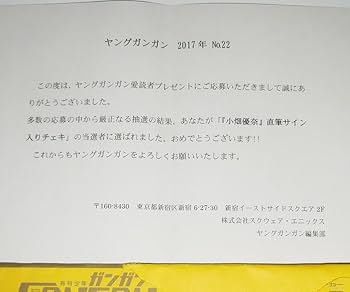 ヤングガンガン 2017年 No.22
この度は、ヤングガンガン愛読者プレゼントにご応募いただきまして誠にあ
りがとうございました。
多数の応募の中から厳正なる抽選の結果、あなたが「『小畑優奈』直筆サイン
入りチェキ」の当選者に選ばれました、おめでとうございます!!
これからもヤングガンガンをよろしくお願いいたします。
〒160-8430 東京都新宿区新宿 6-27-30 新宿イーストサイドスクエア 2F
株式会社スクウェア・エニックス
ヤングガンガン編集部
月刊少年 ガンガン